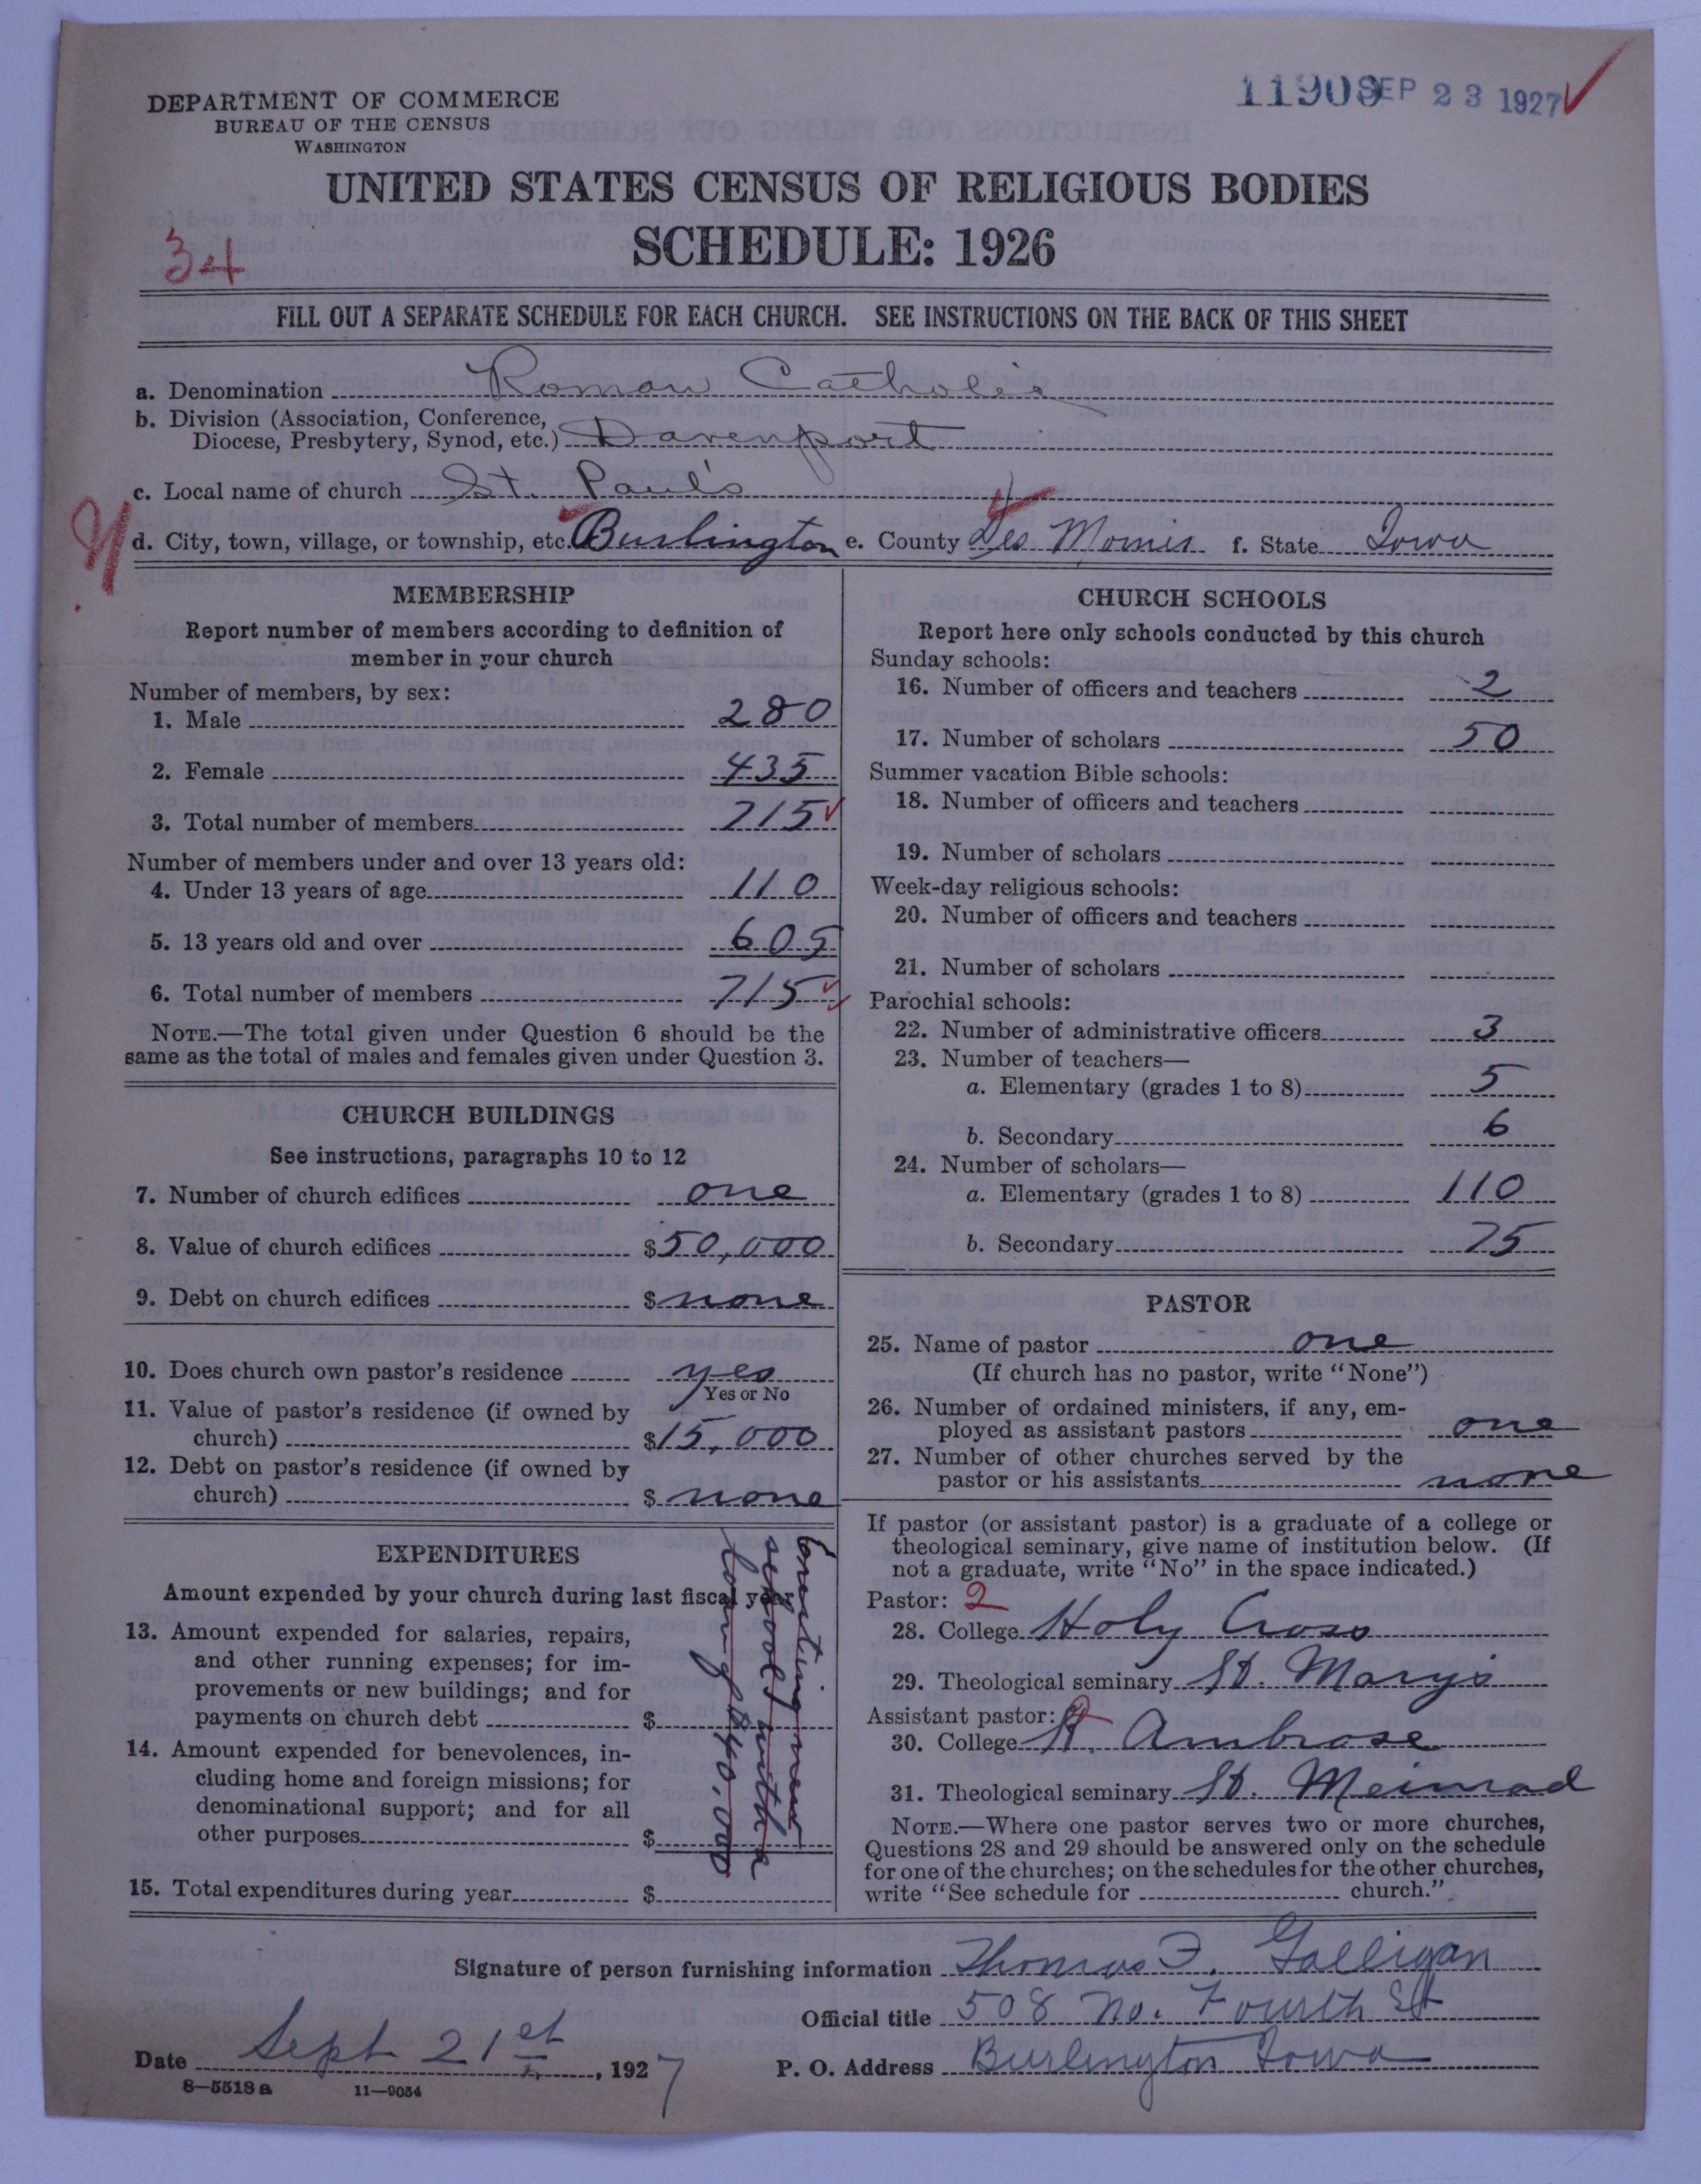 DEPARTMENT OF COMMERCE
BUREAU OF THE CENSUS
WASHINGTON
11900 SEP 23 1927
UNITED STATES CENSUS OF RELIGIOUS BODIES
SCHEDULE: 1926
34
FILL OUT A SEPARATE SCHEDULE FOR EACH CHURCH. SEE INSTRUCTIONS ON THE BACK OF THIS SHEET
a. Denomination Roman Catholic
b. Division (Association, Conference,
Diocese, Presbytery, Synod, etc.) Davenport
c. Local name of church St. Paul's
d. City, town, village, or township, etc. Burlington e. County Des Moines f. State Iowa
MEMBERSHIP
Report number of members according to definition of
member in your church
Number of members, by sex:
1. Male 280
2. Female 435
3. Total number of members 715
Number of members under and over 13 years old:
4. Under 13 years of age 110
5. 13 years old and over 605
6. Total number of members 715
NOTE.—The total given under Question 6 should be the
same as the total of males and females given under Question 3.
CHURCH BUILDINGS
See instructions, paragraphs 10 to 12
7. Number of church edifices one
8. Value of church edifices $50,000
9. Debt on church edifices $ none
10. Does church own pastor's residence yes
Yes or No
11. Value of pastor's residence (if owned by
church) $15,000
12. Debt on pastor's residence (if owned by
church) $ none
EXPENDITURES
Amount expended by your church during last fiscal year
13. Amount expended for salaries, repairs,
and other running expenses; for im-
provements or new buildings; and for
payments on church debt $
14. Amount expended for benevolences, in-
cluding home and foreign missions; for
denominational support; and for all
other purposes $
15. Total expenditures during year $
Erecting new
school with a
loan of $40,000
CHURCH SCHOOLS
Report here only schools conducted by this church
Sunday schools:
16. Number of officers and teachers 2
17. Number of scholars 50
Summer vacation Bible schools:
18. Number of officers and teachers
19. Number of scholars
Week-day religious schools:
20. Number of officers and teachers
21. Number of scholars
Parochial schools:
22. Number of administrative officers 3
23. Number of teachers—
a. Elementary (grades 1 to 8) 5
b. Secondary 6
24. Number of scholars—
a. Elementary (grades 1 to 8) 110
b. Secondary 75
PASTOR
25. Name of pastor one
(If church has no pastor, write "None")
26. Number of ordained ministers, if any, em-
ployed as assistant pastors one
27. Number of other churches served by the
pastor or his assistants none
If pastor (or assistant pastor) is a graduate of a college or
theological seminary, give name of institution below. (If
not a graduate, write "No" in the space indicated.)
Pastor: 2
28. College Holy Cross
29. Theological seminary St. Marys
Assistant pastor: 2
30. College St. Ambrose
31. Theological seminary St. Meinrad
NOTE.—Where one pastor serves two or more churches,
Questions 28 and 29 should be answered only on the schedule
for one of the churches; on the schedules for the other churches,
write "See schedule for church."
Signature of person furnishing information Thomas F. Galligan
Official title 508 No. Fourth St
Date Sept 21st, 1927 P. O. Address Burlington Iowa
8—5518a 11—9054